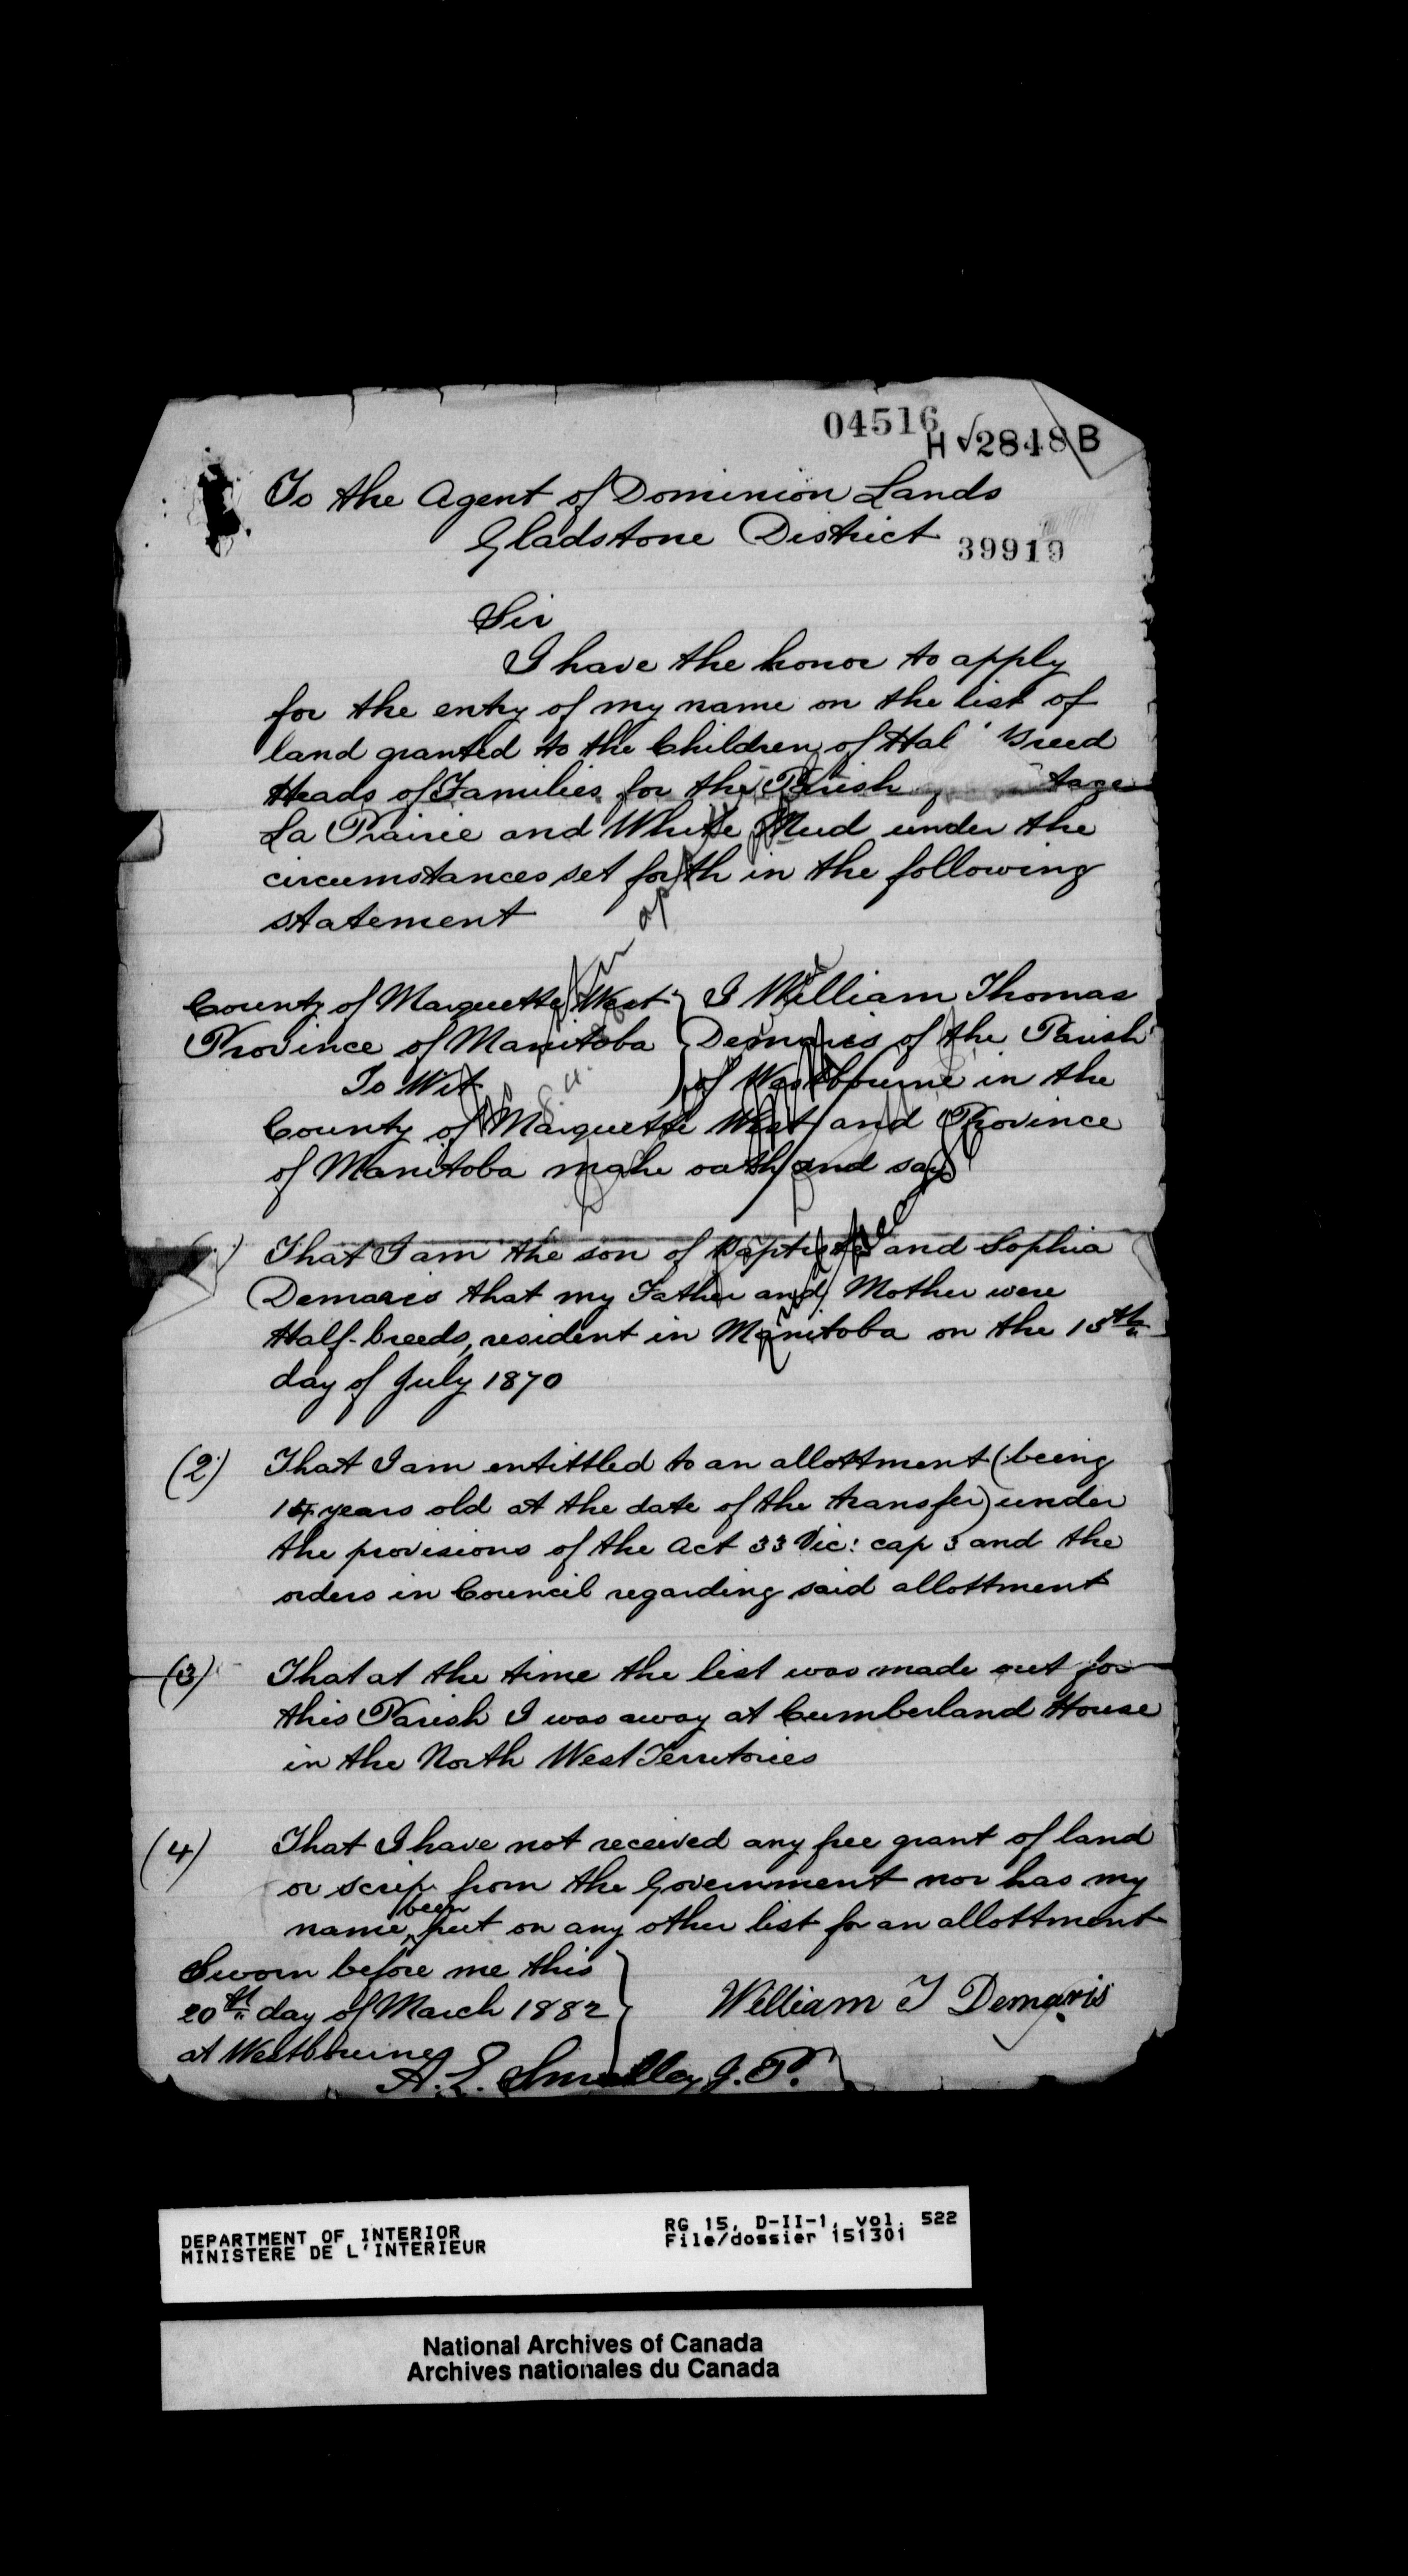 04516
H √2848 B
To the Agent of Dominion Lands
Gladstone District
39919
Sir
I have the honor to apply
for the entry of my name on the list of
land granted to the Children of Hal Breed
Heads of Families for the Parish tage
La Prairie and White Mud under the
circumstances set forth in the following
statement
County of Marquette West } I William Thomas
Province of Manitoba } Demaris of the Parish
To Wit } of Westbourne in the
County of Marquette West and Province
of Manitoba make oath and say
That I am the son of Baptiste and Sophia
Demaris that my Father and Mother were
Half-breeds, resident in Manitoba on the 15th
day of July 1870
(2) That I am entittled to an allottment (being
14 years old at the date of the transfer) under
the provisions of the Act 33 Vic: cap 3 and the
orders in Council regarding said allottment
(3) That at the time the list was made out for
this Parish I was away at Cumberland House
in the North West Territories
(4) That I have not received any free grant of land
or scrip from the Government nor has my
name been put on any other list for an allottment
Sworn before me this
20th day of March 1882 } William T Demaris
at Westbourne
A. E. Smalley J. P.
DEPARTMENT OF INTERIOR
MINISTERE DE L'INTERIEUR
RG 15, D-II-1, vol. 522
File/dossier 151301
National Archives of Canada
Archives nationales du Canada